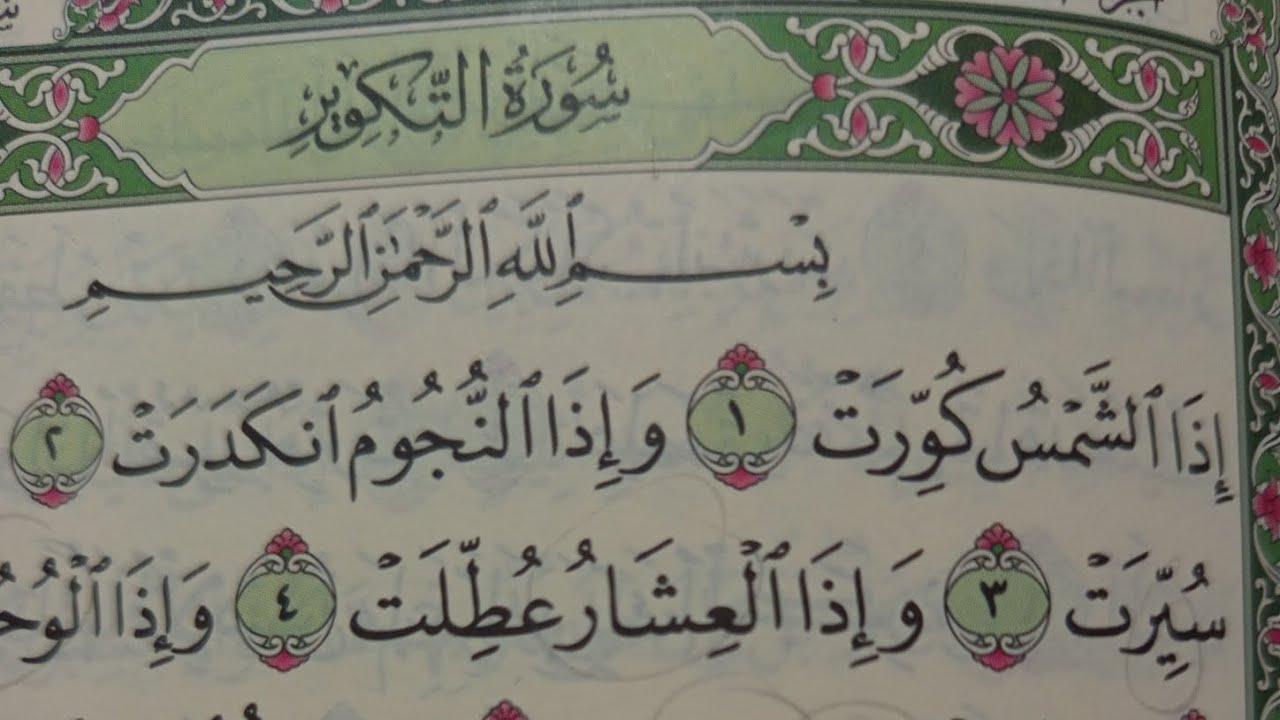 سُورَةُ التَّكْوِيرِ
بِسْمِ ٱللَّهِ ٱلرَّحْمَٰنِ ٱلرَّحِيمِ
إِذَا ٱلشَّمْسُ كُوِّرَتْ ١ وَإِذَا ٱلنُّجُومُ ٱنكَدَرَتْ ٢
سُيِّرَتْ ٣ وَإِذَا ٱلْعِشَارُ عُطِّلَتْ ٤ وَإِذَا